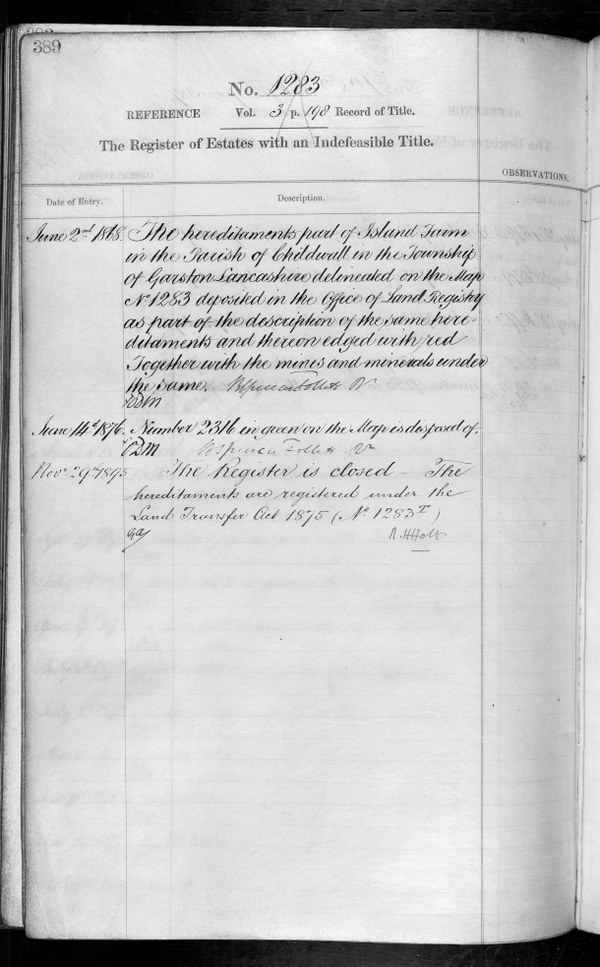 389
No. 1283
REFERENCE Vol. 3 / p. 198 Record of Title.
The Register of Estates with an Indefeasible Title.
OBSERVATIONS.
Date of Entry. Description.
June 2nd 1868. The hereditaments part of Island Farm
in the Parish of Childwall in the Township
of Garston Lancashire delineated on the Map
No 1283 deposited in the Office of Land Registry
as part of the description of the same here-
ditaments and thereon edged with red
Together with the mines and minerals under
the same. B Spencer Follett R
June 14th 1876. Number 2316 in green on the Map is disposed of.
B Spencer Follett
Novr 29th 1895 The Register is closed – The
hereditaments are registered under the
Land Transfer Act 1875 (No 1283T)
R. H Holt